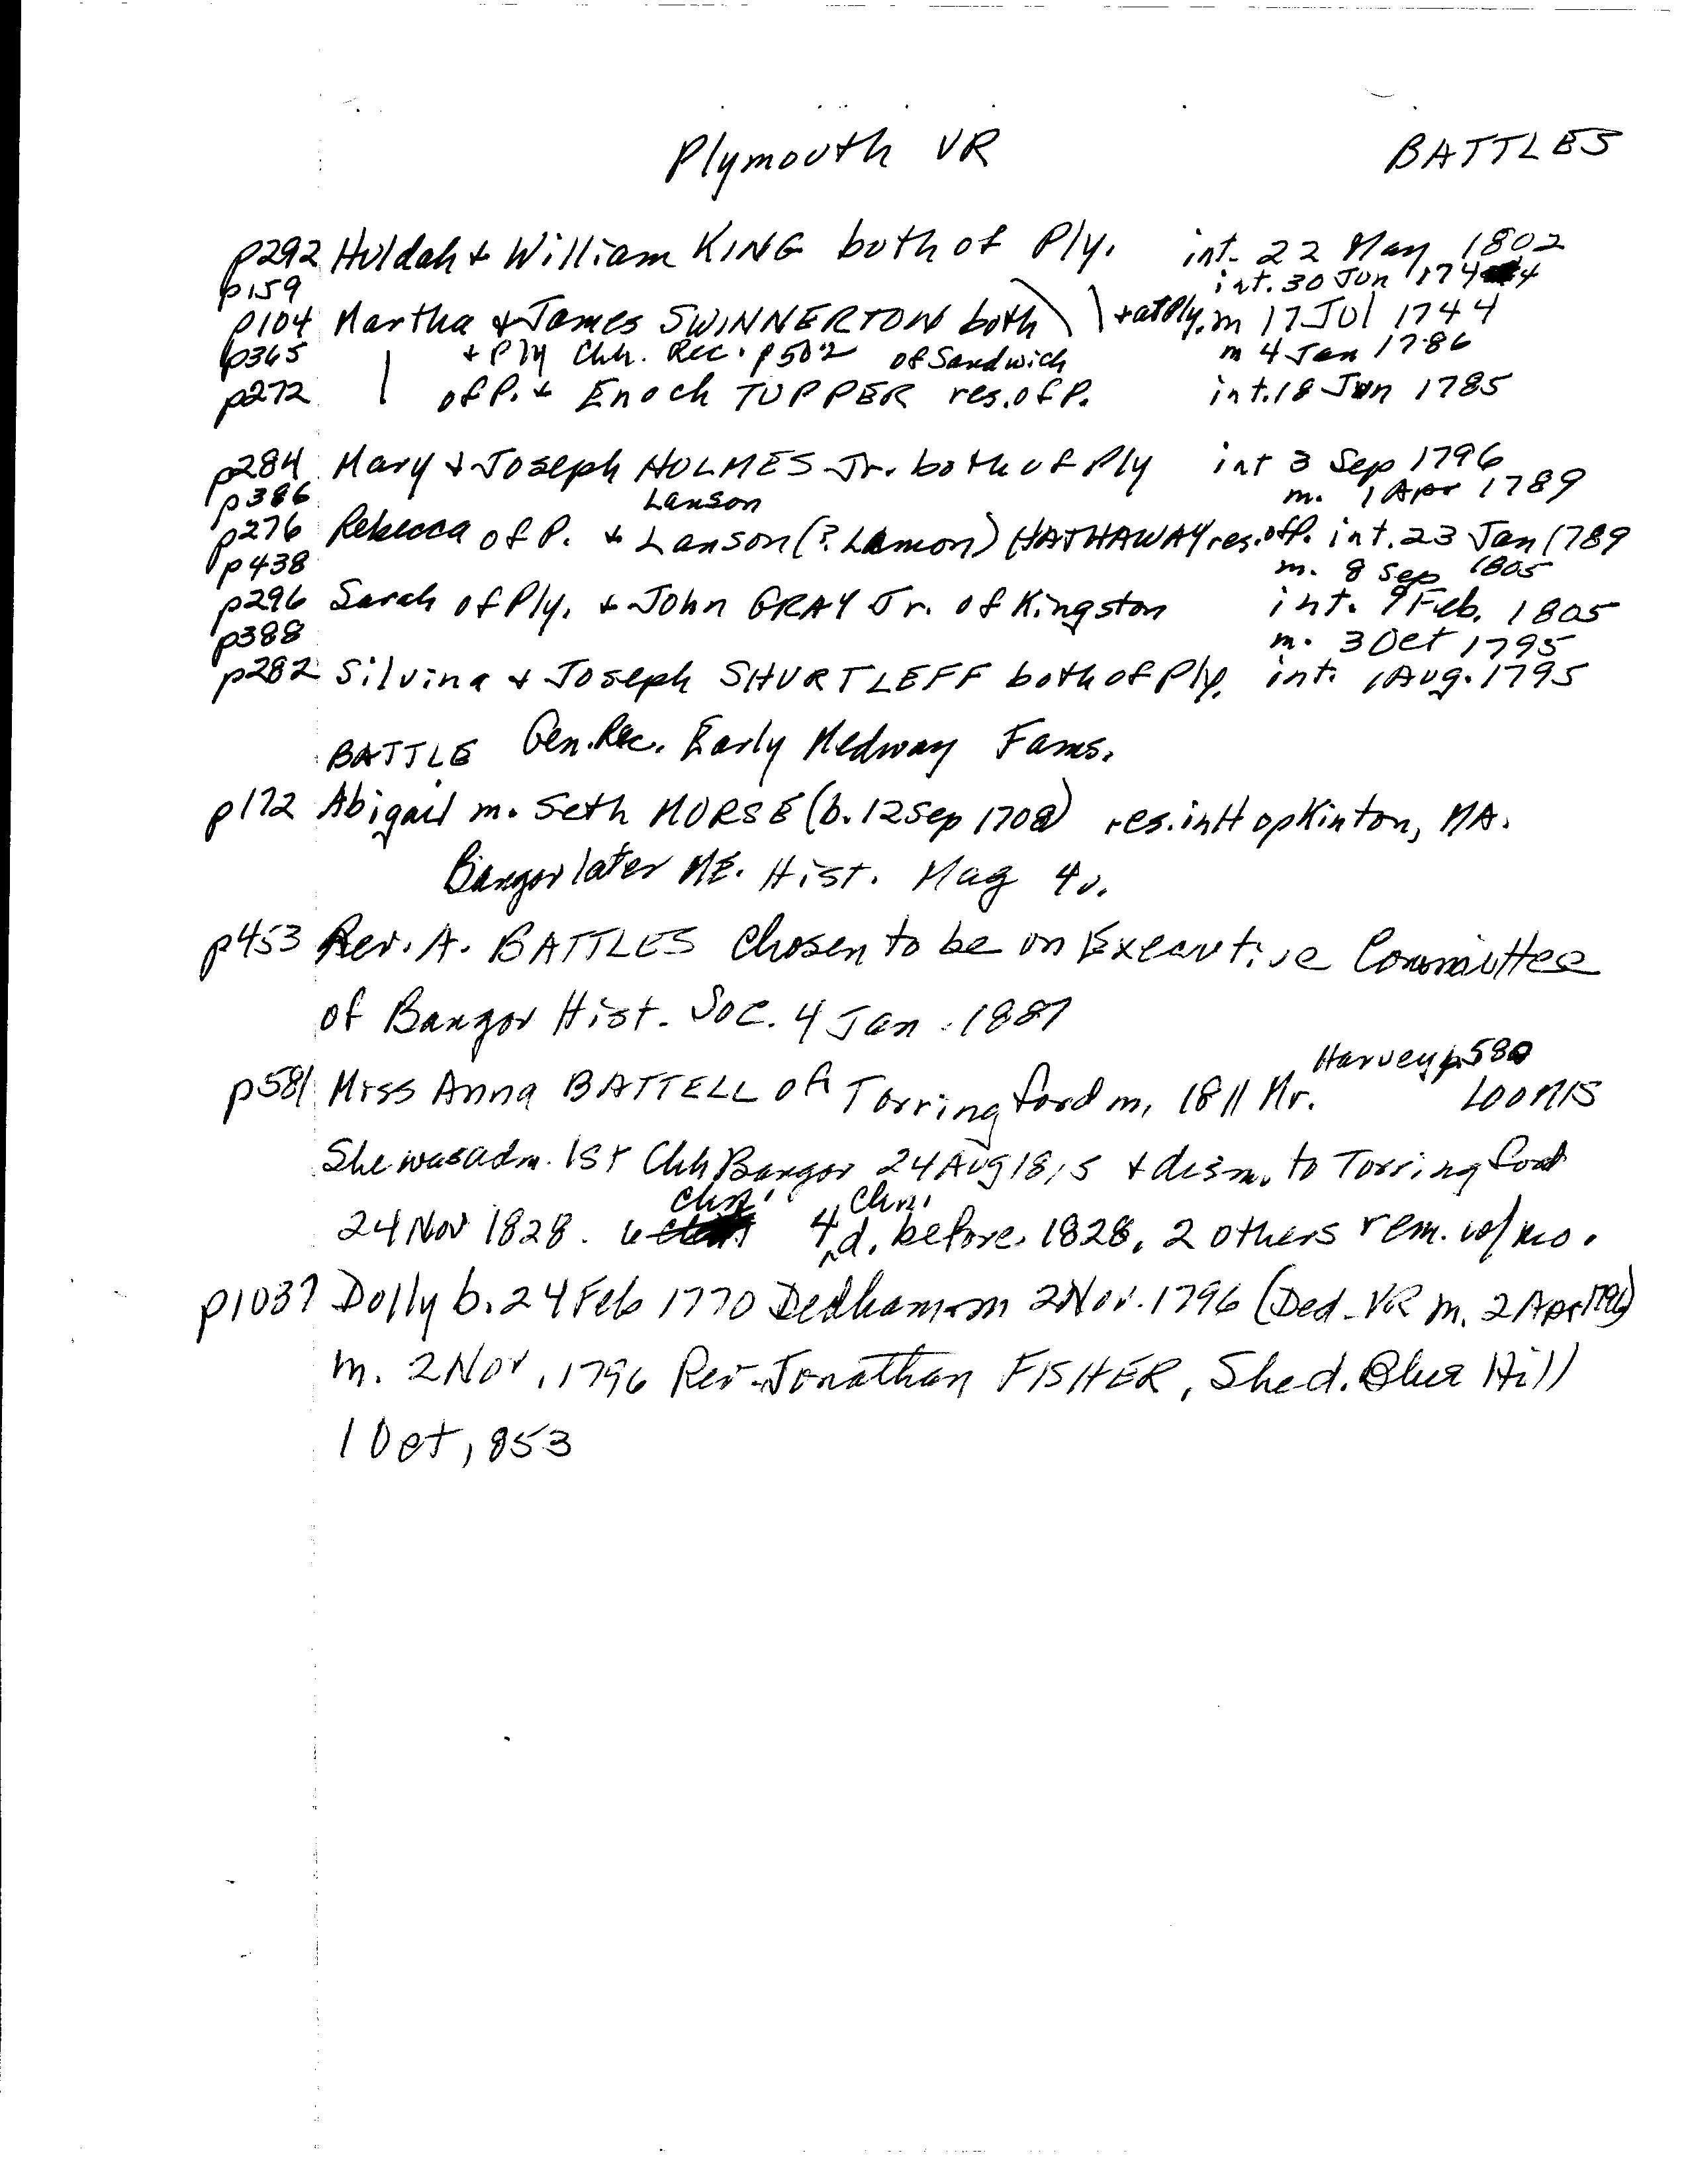 Plymouth VR BATTLES
p292 Huldah + William KING both of Ply. int. 22 May 1802
p159 int. 30 Jun 1744
p104 Martha + James SWINNERTON both + at Ply. m 17 Jul 1744
p365 + Ply Chh. Rec. p502 of Sandwich m 4 Jan 1786
p272 of P. + Enoch TUPPER res. of P. int. 18 Jun 1785
p284 Mary + Joseph HOLMES Jr. both of Ply int 3 Sep 1796
p386 Lanson m. 1 Apr 1789
p276 Rebecca of P. + Lanson (? Lamon) HATHAWAY res. of P. int. 23 Jan 1789
p438 m. 8 Sep 1805
p296 Sarah of Ply. + John GRAY Jr. of Kingston int. 9 Feb. 1805
p388 m. 3 Oct 1795
p282 Silvina + Joseph SHURTLEFF both of Ply. int. 1 Aug. 1795
BATTLE Gen. Rec. Early Medway Fams.
p172 Abigail m. Seth MORSE (b. 12 Sep 1708) res. in Hopkinton, MA.
Bangor later ME. Hist. Mag 4v.
p453 Rev. A. BATTLES Chosen to be on Executive Committee
of Bangor Hist. Soc. 4 Jan. 1887
Harvey p.580
p581 Miss Anna BATTELL of Torringford m. 1811 Mr. LOOMIS
She was adm. 1st Chh Bangor 24 Aug 1815 + dism. to Torringford
chn. chn.
24 Nov 1828. 6 4 d. before 1828, 2 others rem. w/mo.
p1037 Dolly b. 24 Feb 1770 Dedham m 2 Nov. 1796 (Ded. VR m. 2 Apr 1796)
m. 2 Nov. 1796 Rev. Jonathan FISHER, She d. Blue Hill
1 Oct 1853